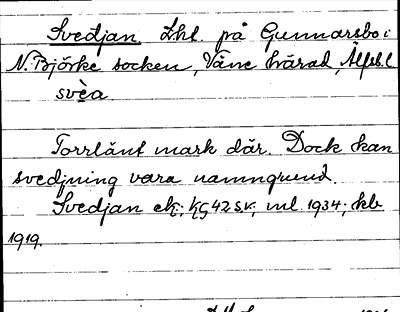 Svedjan. Lht. på Gunnarsbo i
N. Björke socken, Väne härad, Älfsb.l.
svèa
Torrlänt mark där. Dock kan
svedjning vara namngrund.
Svedjan ek: kg 42 s.v., ml. 1934; kb
1919.